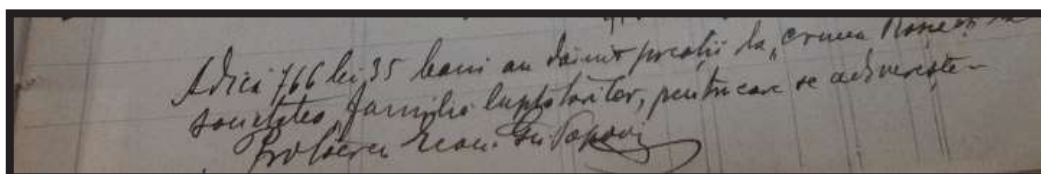 Adică 766 lei, 35 bani au dăinit preoții la „Crucea Roșie” și la
societatea „Familia luptătorilor, pentru care se adeverește
Protoereu Econ. Gr. Popovici